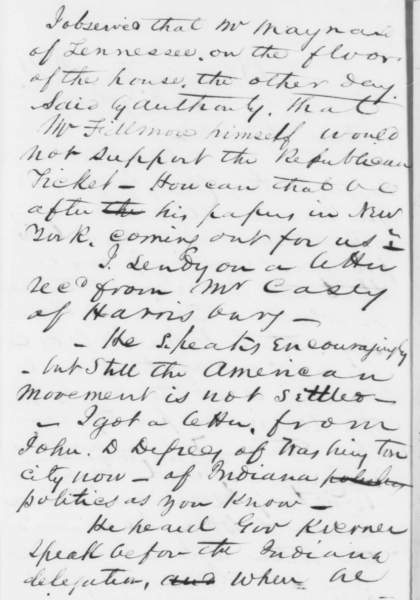 I observed that Mr Maynard
of Tennessee, on the floor
of the house, the other day,
Said by authority, that
Mr Fillmore himself would
not support the Republican
Ticket - How can that be
after the his papers in New
York, coming out for us
I send you a letter
recd from Mr Casey
of Harrisburg -
- He speaks Encouragingly
- but still the American
movement is not settled -
- I got a letter, from
John. D Defrees of Washington
city now - of Indiana
politics as you know -
He heard Gov Koerner
speak before the Indiana
delegation, and when he